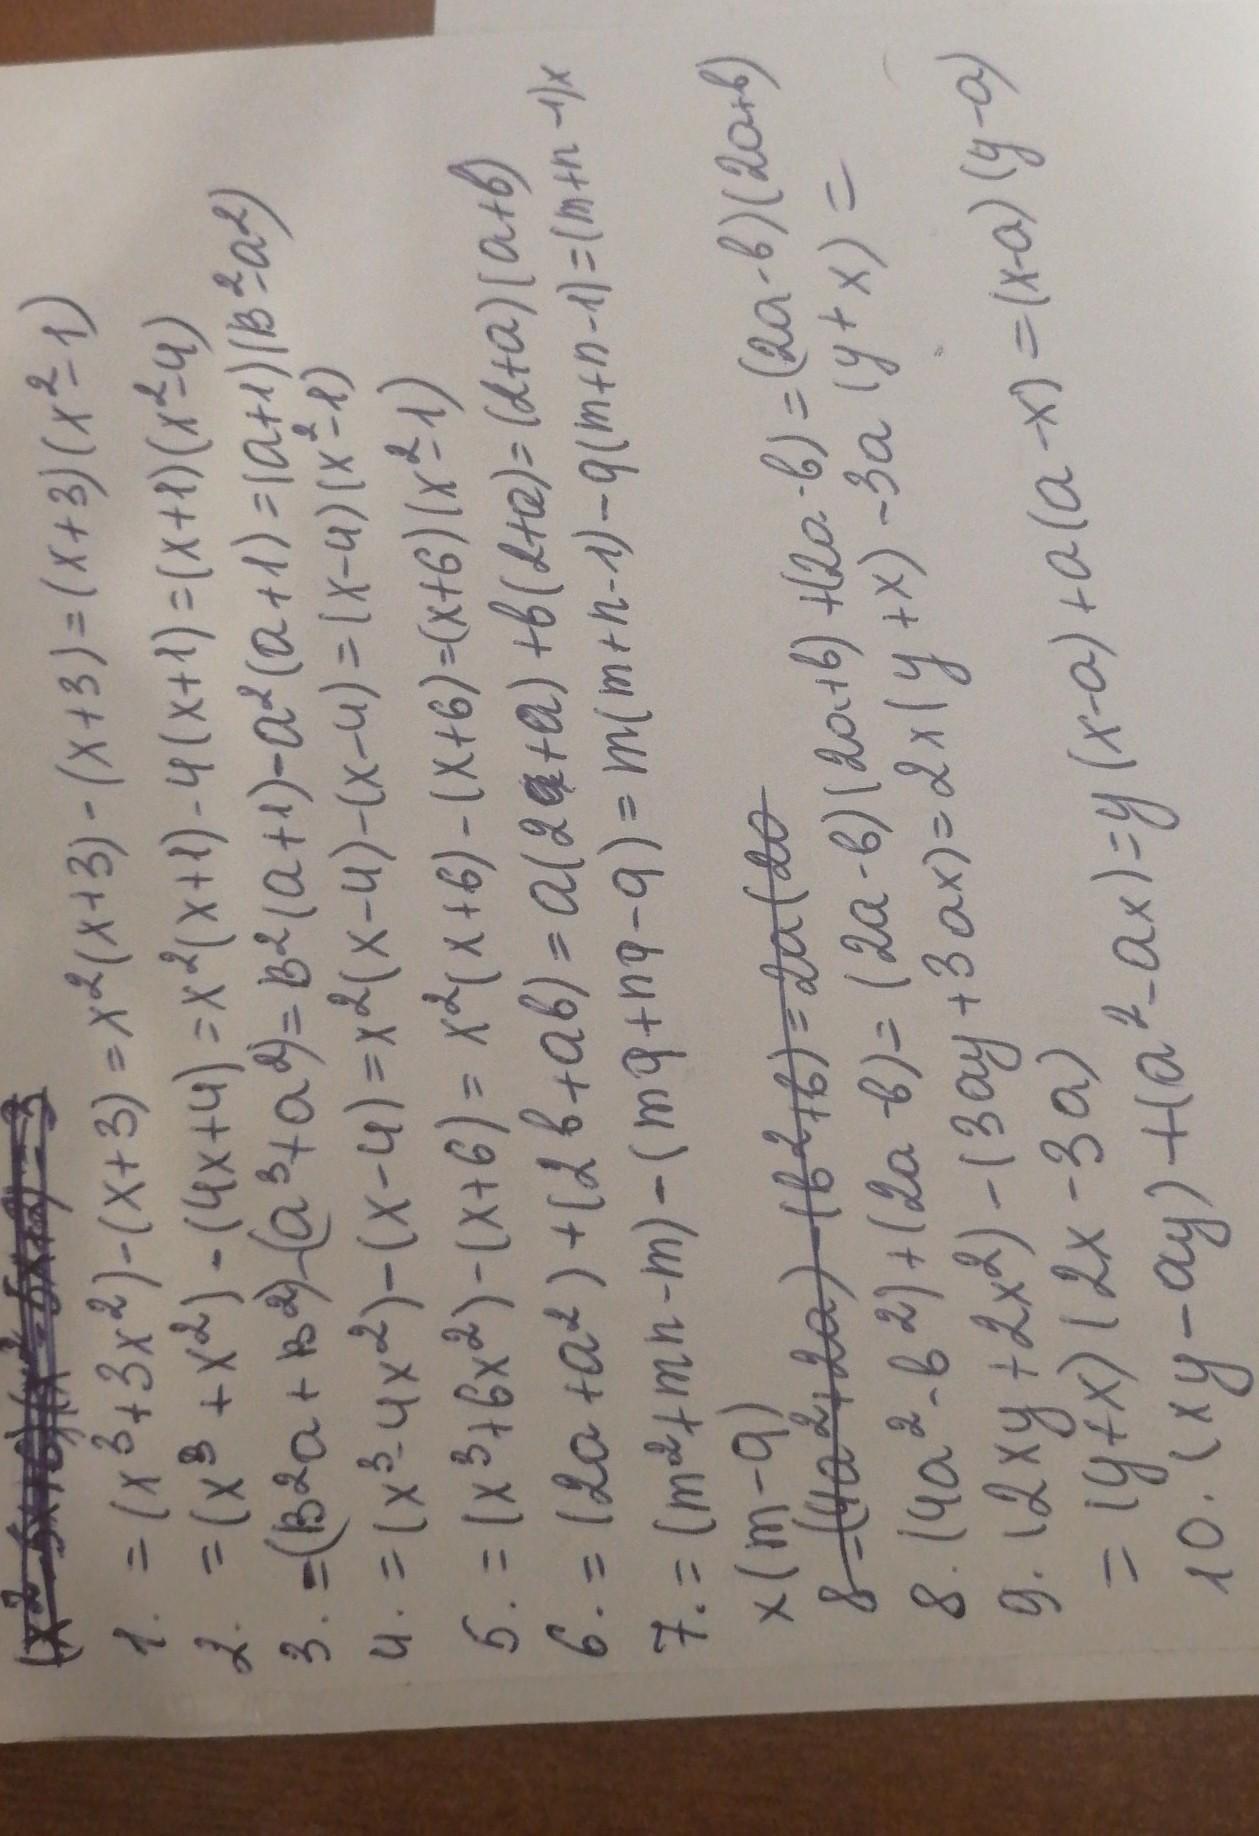 1. = (x³+3x²)-(x+3) = x²(x+3)-(x+3) = (x+3)(x²-1)
2. = (x³+x²)-(4x+4) = x²(x+1)-4(x+1) = (x+1)(x²-4)
3. = (в²a+в²)-(a³+a²) = в²(a+1)-a²(a+1) = (a+1)(в²-a²)
4. = (x³-4x²)-(x-4) = x²(x-4)-(x-4) = (x-4)(x²-1)
5. = (x³+6x²)-(x+6) = x²(x+6)-(x+6) = (x+6)(x²-1)
6. = (2a+a²)+(2b+ab) = a(2+a)+b(2+a) = (2+a)(a+b)
7. = (m²+mn-m)-(mq+nq-q) = m(m+n-1)-q(m+n-1) = (m+n-1)x
x(m-q)
8 = (4a²+2a)-(b²+b) = 2a(2a
8. (4a²-b²)+(2a-b) = (2a-b)(2a+b)+(2a-b) = (2a-b)(2a+b)
9. (2xy+2x²)-(3ay+3ax) = 2x(y+x)-3a(y+x) =
= (y+x)(2x-3a)
10. (xy-ay)+(a²-ax) = y(x-a)+a(a-x) = (x-a)(y-a)